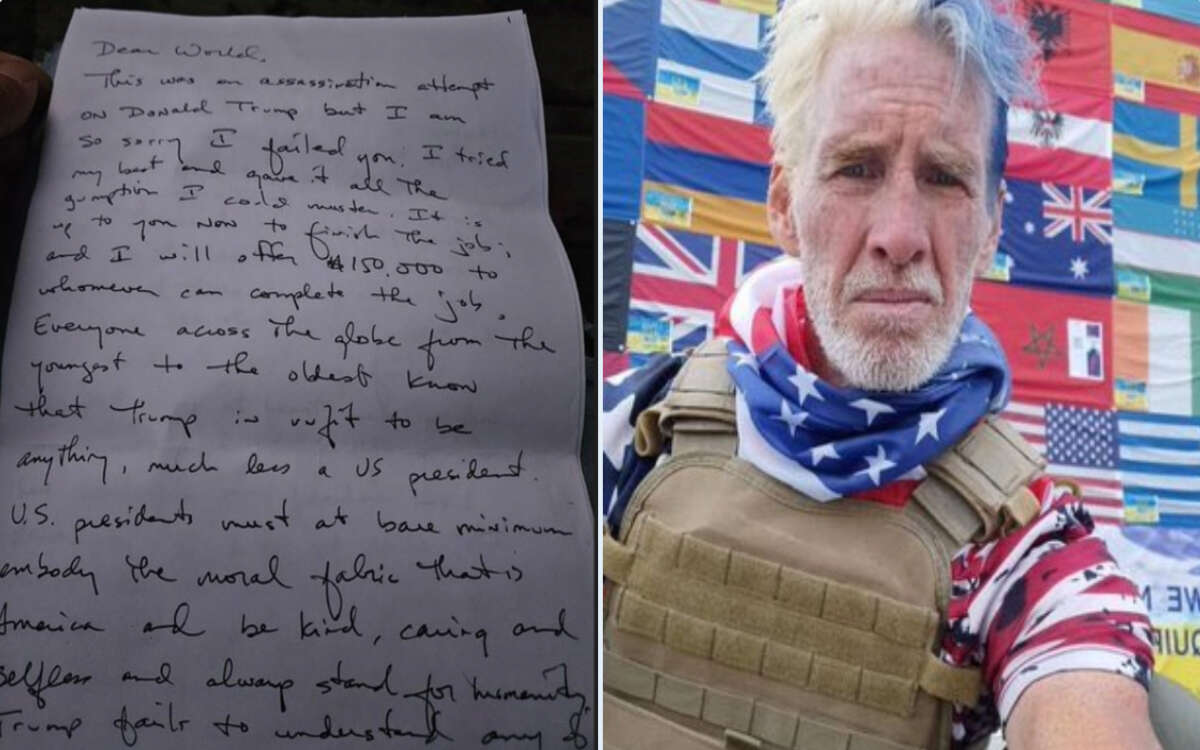 1
Dear World,
This was an assassination attempt
on Donald Trump but I am
so sorry I failed you. I tried
my best and gave it all the
gumption I could muster. It is
up to you now to finish the job;
and I will offer $150,000 to
whomever can complete the job.
Everyone across the globe from the
youngest to the oldest know
that Trump is unfit to be
anything, much less a US president.
U.S. presidents must at bare minimum
embody the moral fabric that is
America and be kind, caring and
selfless and always stand for humanity.
Trump fails to understand any of
WE M
QUIP